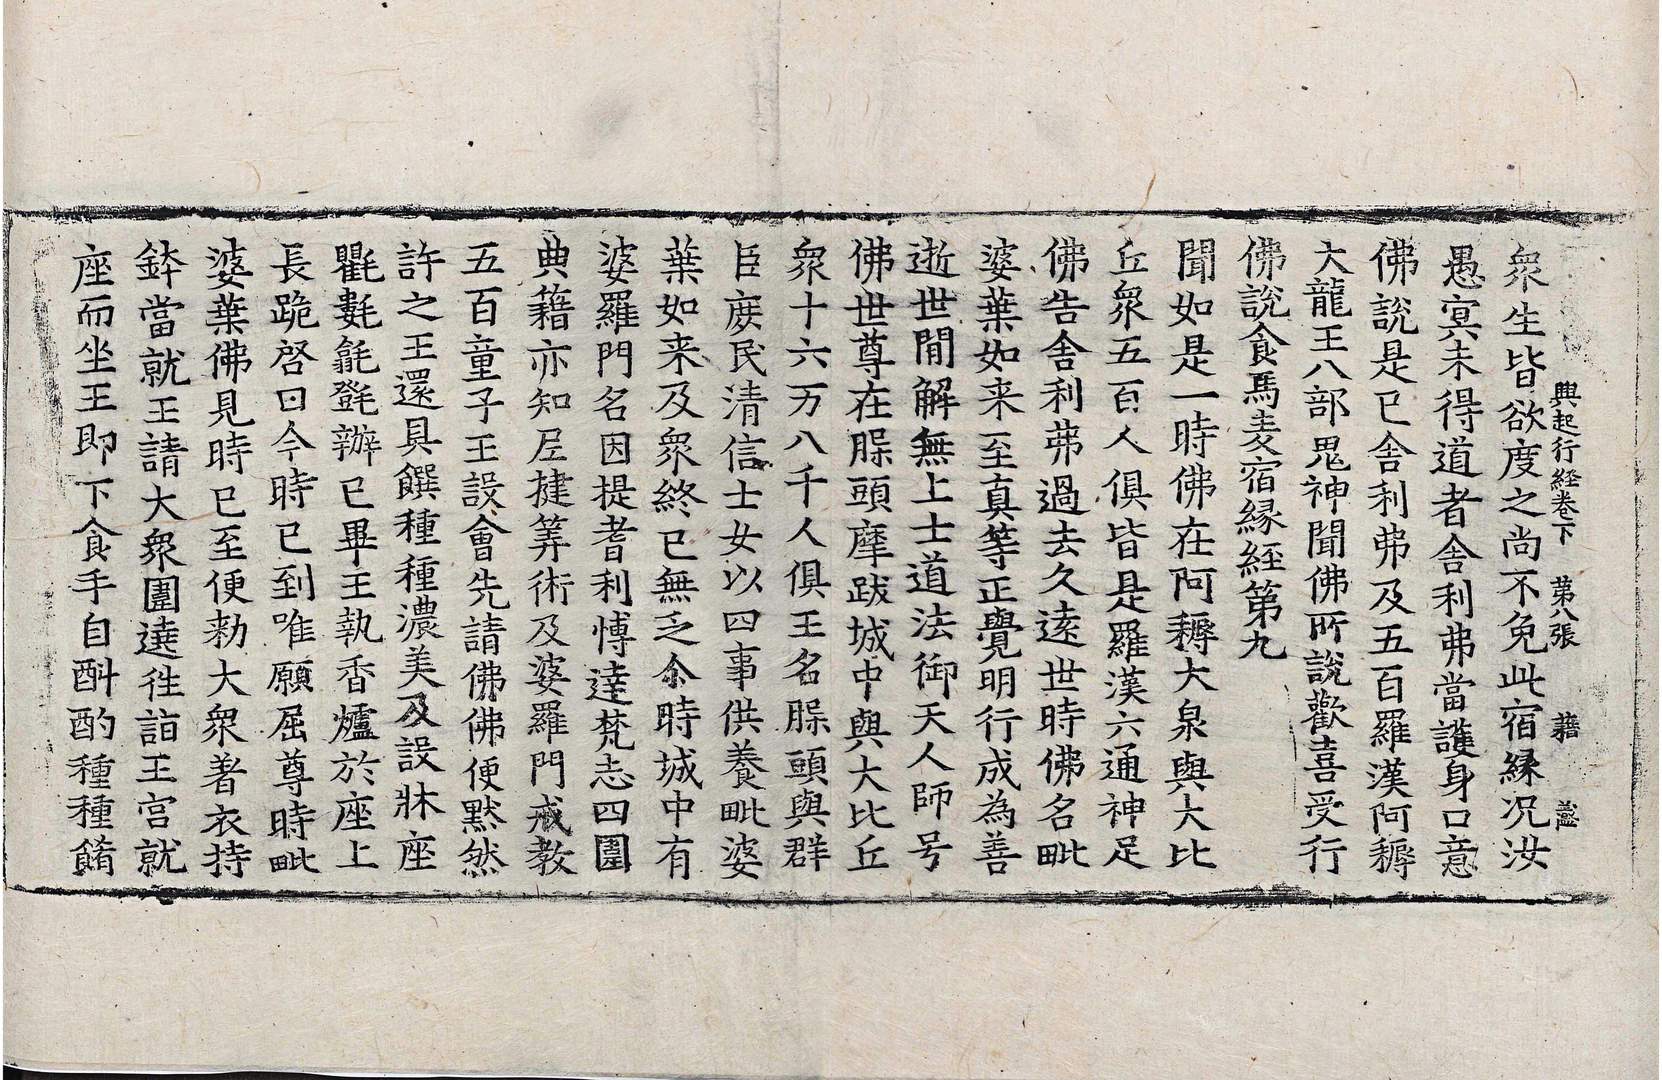 興起行經卷下　第八張　籍
衆生皆欲度之尚不免此宿緣况汝
愚冥未得道者舎利弗當護身口意
佛說是已舎利弗及五百羅漢阿耨
大龍王八部鬼神聞佛所說歡喜受行
佛說食馬麦宿緣經第九
聞如是一時佛在阿耨大泉與大比
丘衆五百人俱皆是羅漢六通神足
佛告舎利弗過去久遠世時佛名毗
婆葉如来至真等正覺明行成為善
逝世間解無上士道法御天人師号
佛世尊在脲頭摩跋城中與大比丘
衆十六万八千人俱王名脲頭與群
臣庶民清信士女以四事供養毗婆
葉如来及衆終已無乏尒時城中有
婆羅門名因提耆利愽達梵志四圍
典籍亦知尼揵筭術及婆羅門戒教
五百童子王設會先請佛佛便黙然
許之王還具饌種種濃美及設牀座
氍𣯜毾㲪辦已畢王執香爐於座上
長跪啓曰今時已到唯願屈尊時毗
婆葉佛見時已至便勑大衆著衣持
鉢當就王請大衆圍遶徃詣王宮就
座而坐王即下食手自斟酌種種餚